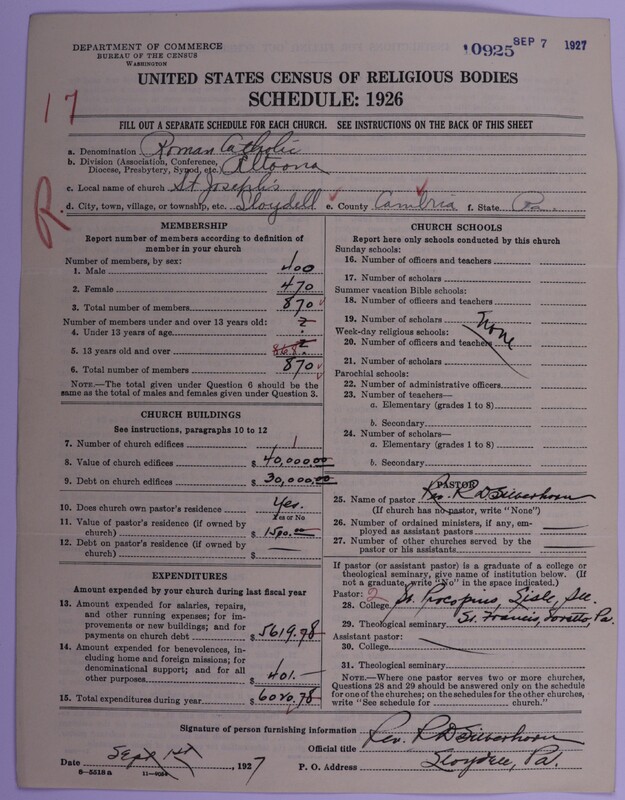 DEPARTMENT OF COMMERCE
BUREAU OF THE CENSUS
WASHINGTON
10925 SEP 7 1927
UNITED STATES CENSUS OF RELIGIOUS BODIES
SCHEDULE: 1926
17
FILL OUT A SEPARATE SCHEDULE FOR EACH CHURCH. SEE INSTRUCTIONS ON THE BACK OF THIS SHEET
a. Denomination Roman Catholic
b. Division (Association, Conference, Diocese, Presbytery, Synod, etc.) Altoona
c. Local name of church St Joseph's
R
d. City, town, village, or township, etc. Lloydell e. County Cambria f. State Pa.
MEMBERSHIP
Report number of members according to definition of
member in your church
Number of members, by sex:
1. Male 400
2. Female 470
3. Total number of members 870
Number of members under and over 13 years old:
4. Under 13 years of age 2
5. 13 years old and over 868
6. Total number of members 870
NOTE.—The total given under Question 6 should be
same as the total of males and females given under Question 3.
CHURCH BUILDINGS
See instructions, paragraphs 10 to 12
7. Number of church edifices 1
8. Value of church edifices $ 40,000.00
9. Debt on church edifices $ 30,000.00
10. Does church own pastor's residence Yes.
Yes or No
11. Value of pastor's residence (if owned by
church) $ 1500.00
12. Debt on pastor's residence (if owned by
church) $ —
EXPENDITURES
Amount expended by your church during last fiscal year
13. Amount expended for salaries, repairs,
and other running expenses; for im-
provements or new buildings; and for
payments on church debt $ 5619.78
14. Amount expended for benevolences,
including home and foreign missions; for
denominational support; and for all
other purposes $ 401.—
15. Total expenditures during year $ 6020.78
CHURCH SCHOOLS
Report here only schools conducted by this church
Sunday schools:
16. Number of officers and teachers
17. Number of scholars
Summer vacation Bible schools:
18. Number of officers and teachers
19. Number of scholars
None
Week-day religious schools:
20. Number of officers and teachers
21. Number of scholars
Parochial schools:
22. Number of administrative officers
23. Number of teachers—
a. Elementary (grades 1 to 8)
b. Secondary
24. Number of scholars—
a. Elementary (grades 1 to 8)
b. Secondary
PASTOR
25. Name of pastor Rev. R D Silverhorn
(If church has no pastor, write "None")
26. Number of ordained ministers, if any, em-
ployed as assistant pastors
27. Number of other churches served by the
pastor or his assistants
If pastor (or assistant pastor) is a graduate of a college or
theological seminary, give name of institution below. (If
not a graduate, write "No" in the space indicated.)
Pastor: 2
28. College St. Procopius, Lisle, Ill.
29. Theological seminary St. Francis, Loretto, Pa.
Assistant pastor:
30. College
31. Theological seminary
NOTE.—Where one pastor serves two or more churches,
Questions 28 and 29 should be answered only on the schedule
for one of the churches; on the schedules for the other churches,
write "See schedule for church."
Signature of person furnishing information Rev. R D Silverhorn
Official title
Date Sept 1st, 1927 P. O. Address Lloydell, Pa.
8—5518a 11—9034